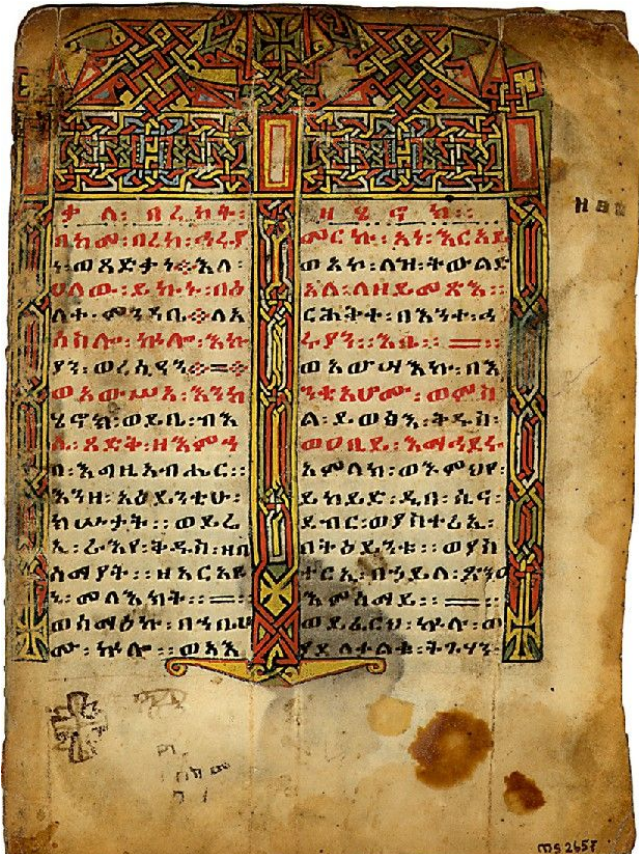 ቃለ፡ በረከት፡
በከመ፡በረከ፡ኅሩያ
ነ፡ወጻድቃነ፡እለ፡
ሀለው፡ይኩኑ፡በዕ
ለተ፡ምንዳቤ፡ለአ
ሰስሎ፡ኵሎ፡እኩ
ያን፡ወረሲዓን
ወአውሥአ፡እንከ
ሄኖክ፡ወይቤ፡ብእ
ሲ፡ጻድቅ፡ዘእምኀ
በ፡እግዚአብሔር፡፡
እንዘ፡አዕይንቲሁ፡
ክሡታት፡፡ወይሬ
ኢ፡ራእየ፡ቅዱስ፡ዘበ
ሰማያት፡፡ዘአርአዩ
ኒ፡መላእክት፡፡
ወሰማዕኩ፡በኀቤሆ
ሙ፡ኵሎ፡፡ወአእ
ዘሄኖክ፡፡
መርኩ፡አነ፡እርአይ
ወአኮ፡ለዝ፡ትውልድ
አላ፡ለዘይመጽእ፡፡
ርሕቅተ፡በእንተ፡ኅ
ሩያን፡፡እቤ፡፡
ወአውሣእኩ፡በእ
ንቲአሆሙ፡ወምስ
ል፡ይወፅእ፡ቅዱስ፡
ወዐቢይ፡እማኅደሩ፡
አምላክ፡ወእምህየ፡
ይከይድ፡ዲበ፡ሲና፡
ደብር፡ወያስተርኢ፡
በትዕይንቱ፡፡ወያስ
ተርኢ፡በኃይለ፡ጽንዐ
እምሰማይ፡፡
ወይፈርህ፡ኵሉ፡ወ
ያደለቀልቁ፡ትጉሃን፡
MS 2657